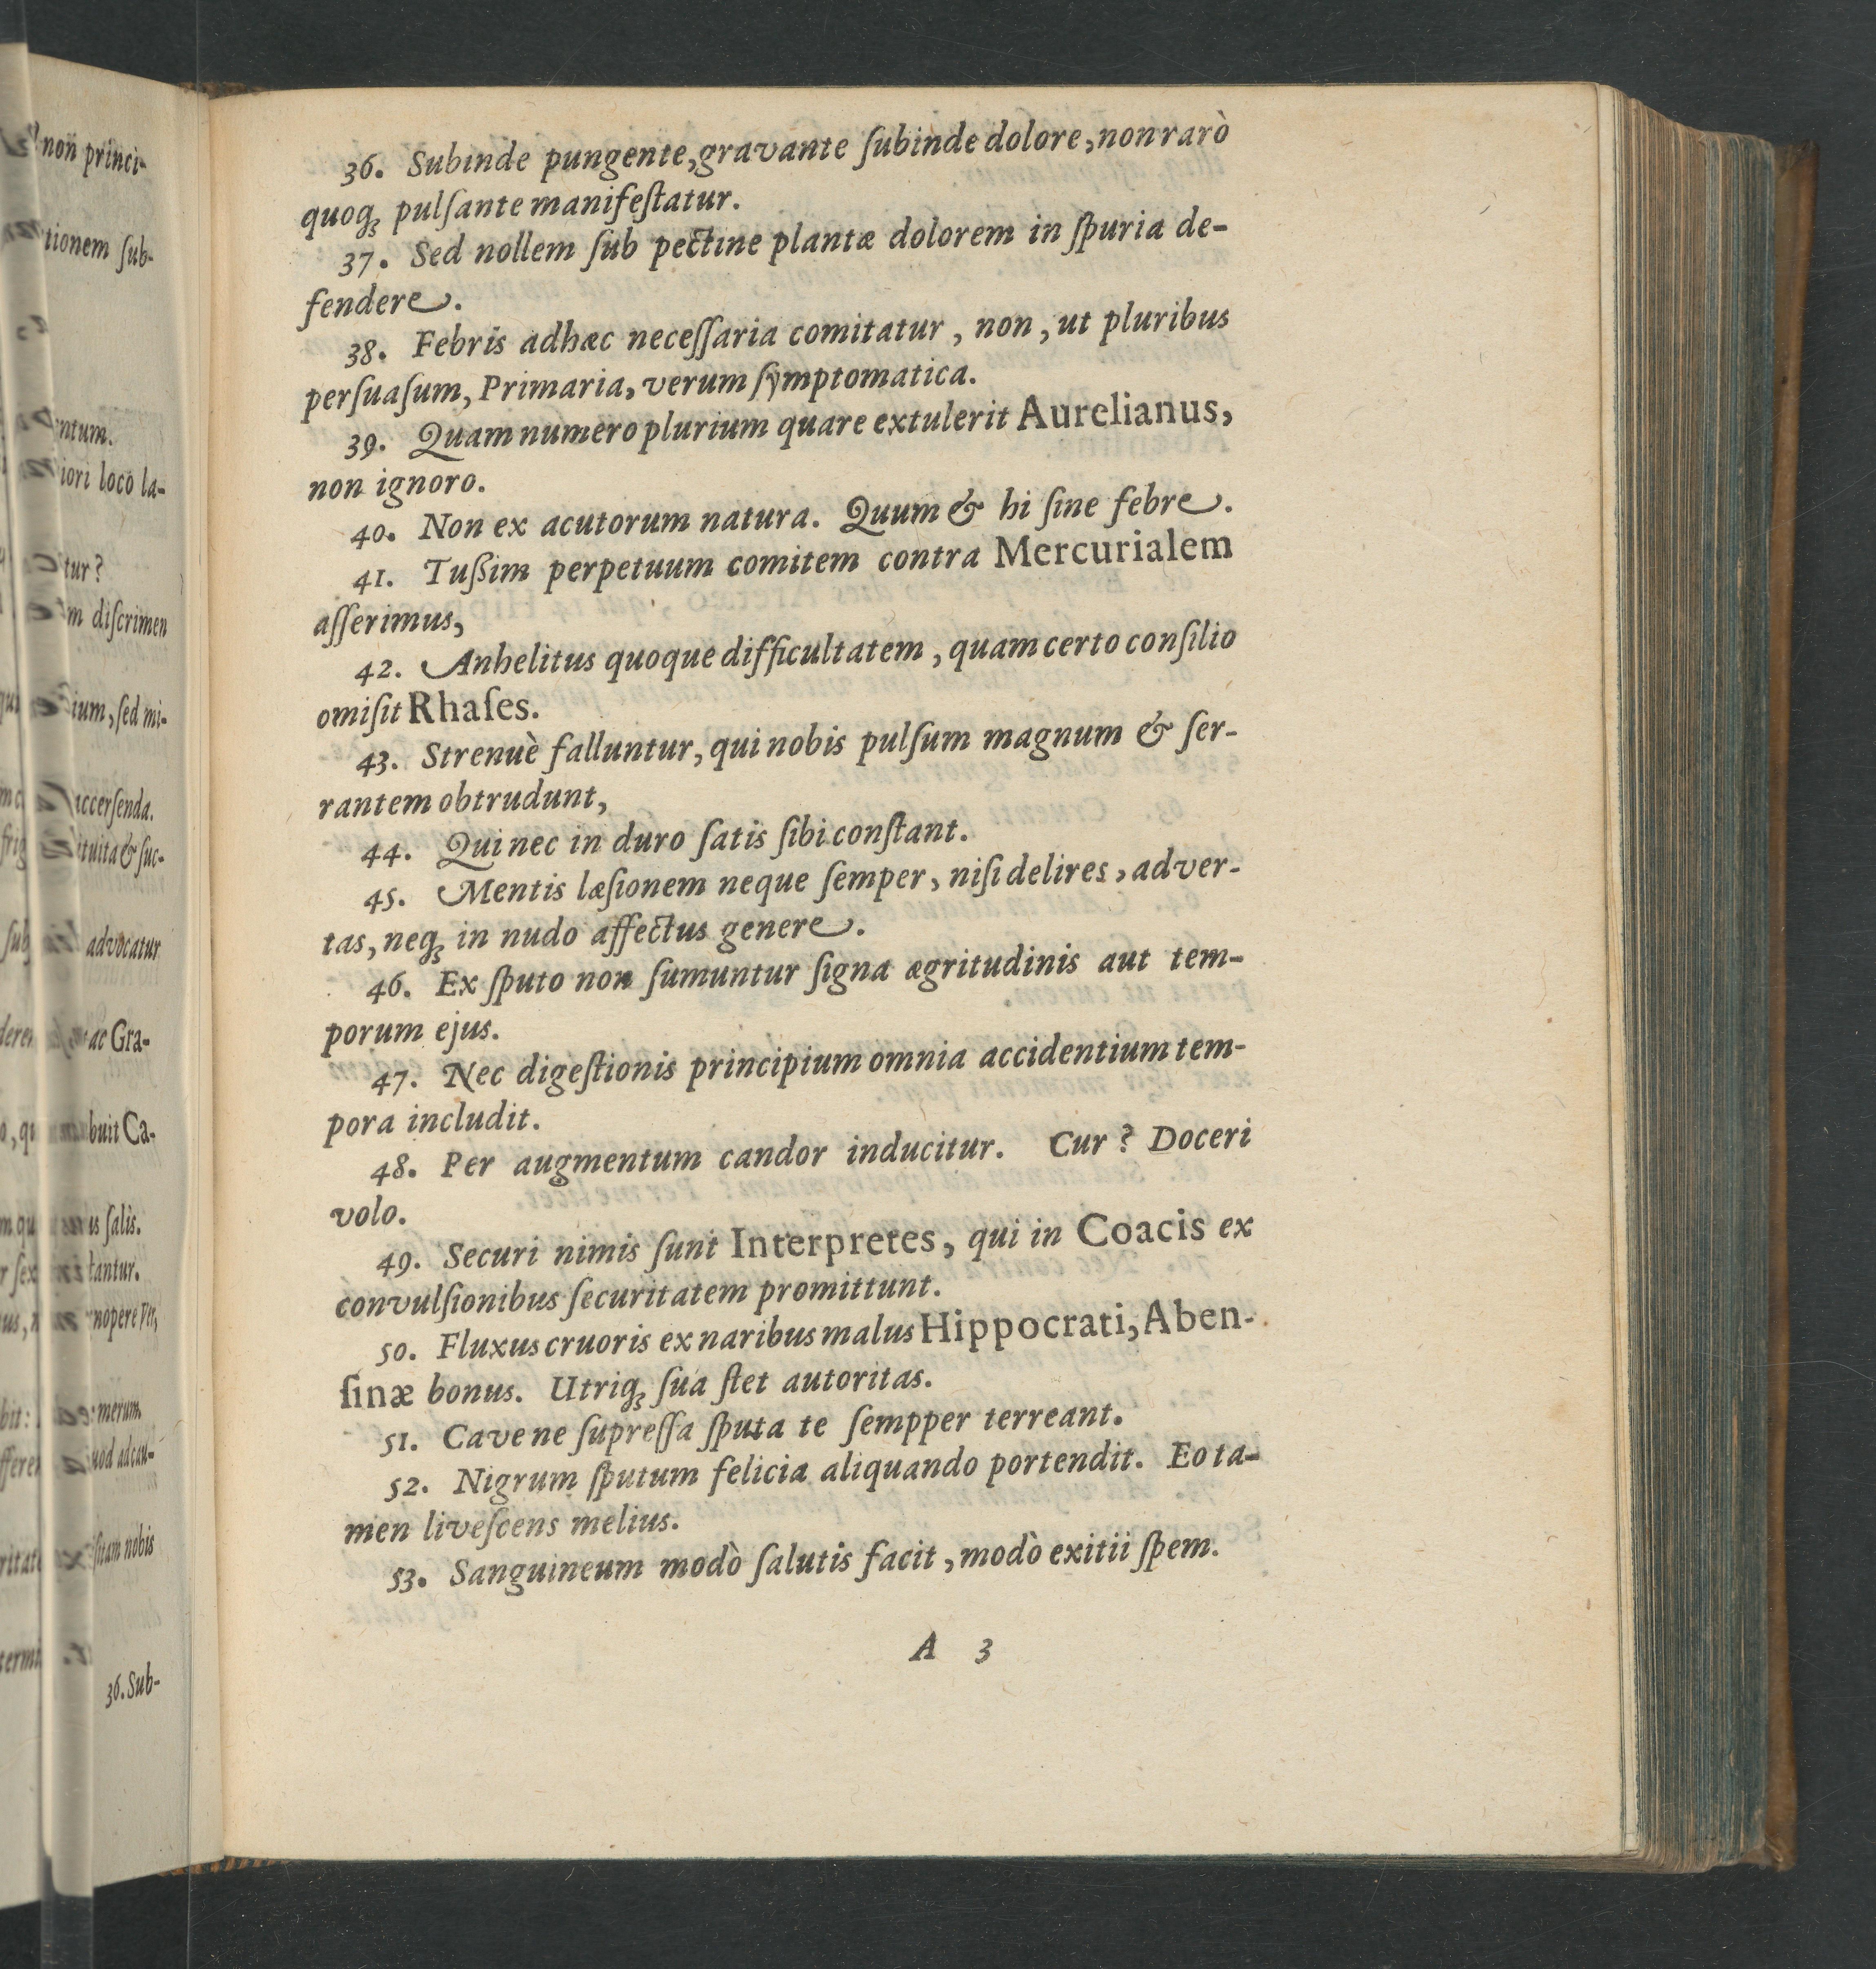 non princi-
tionem ſub-
iori loco la-
tur?
m diſcrimen
ium, ſed mi-
accerſenda.
ituita & ſuc-
advocatur
ac Gra-
buit Ca-
ſalis.
tantur.
nopere
merum.
nobis
36. Sub-
36. Subinde pungente, gravante ſubinde dolore, non rarò
quoqꝫ pulſante manifeſtatur.
37. Sed nollem ſub pectine plantæ dolorem in ſpuria de-
fendere.
38. Febris adhæc neceſſaria comitatur, non, ut pluribus
perſuaſum, Primaria, verum ſymptomatica.
39. Quam numero plurium quare extulerit Aurelianus,
non ignoro.
40. Non ex acutorum natura. Quum & hi ſine febre.
41. Tußim perpetuum comitem contra Mercurialem
aſſerimus,
42. Anhelitus quoque difficultatem, quam certo conſilio
omiſit Rhaſes.
43. Strenuè falluntur, qui nobis pulſum magnum & ſer-
rantem obtrudunt,
44. Qui nec in duro ſatis ſibi conſtant.
45. Mentis læſionem neque ſemper, niſi delires, adver-
tas, neqꝫ in nudo affectus genere.
46. Ex ſputo non ſumuntur ſigna ægritudinis aut tem-
porum ejus.
47. Nec digeſtionis principium omnia accidentium tem-
pora includit.
48. Per augmentum candor inducitur. Cur? Doceri
volo.
49. Securi nimis ſunt Interpretes, qui in Coacis ex
convulſionibus ſecuritatem promittunt.
50. Fluxus cruoris ex naribus malus Hippocrati, Aben-
ſinæ bonus. Utriqꝫ ſua ſtet autoritas.
51. Cave ne ſupreſſa ſputa te ſempper terreant.
52. Nigrum ſputum felicia aliquando portendit. Eo ta-
men liveſcens melius.
53. Sanguineum modò ſalutis facit, modò exitii ſpem.
A 3